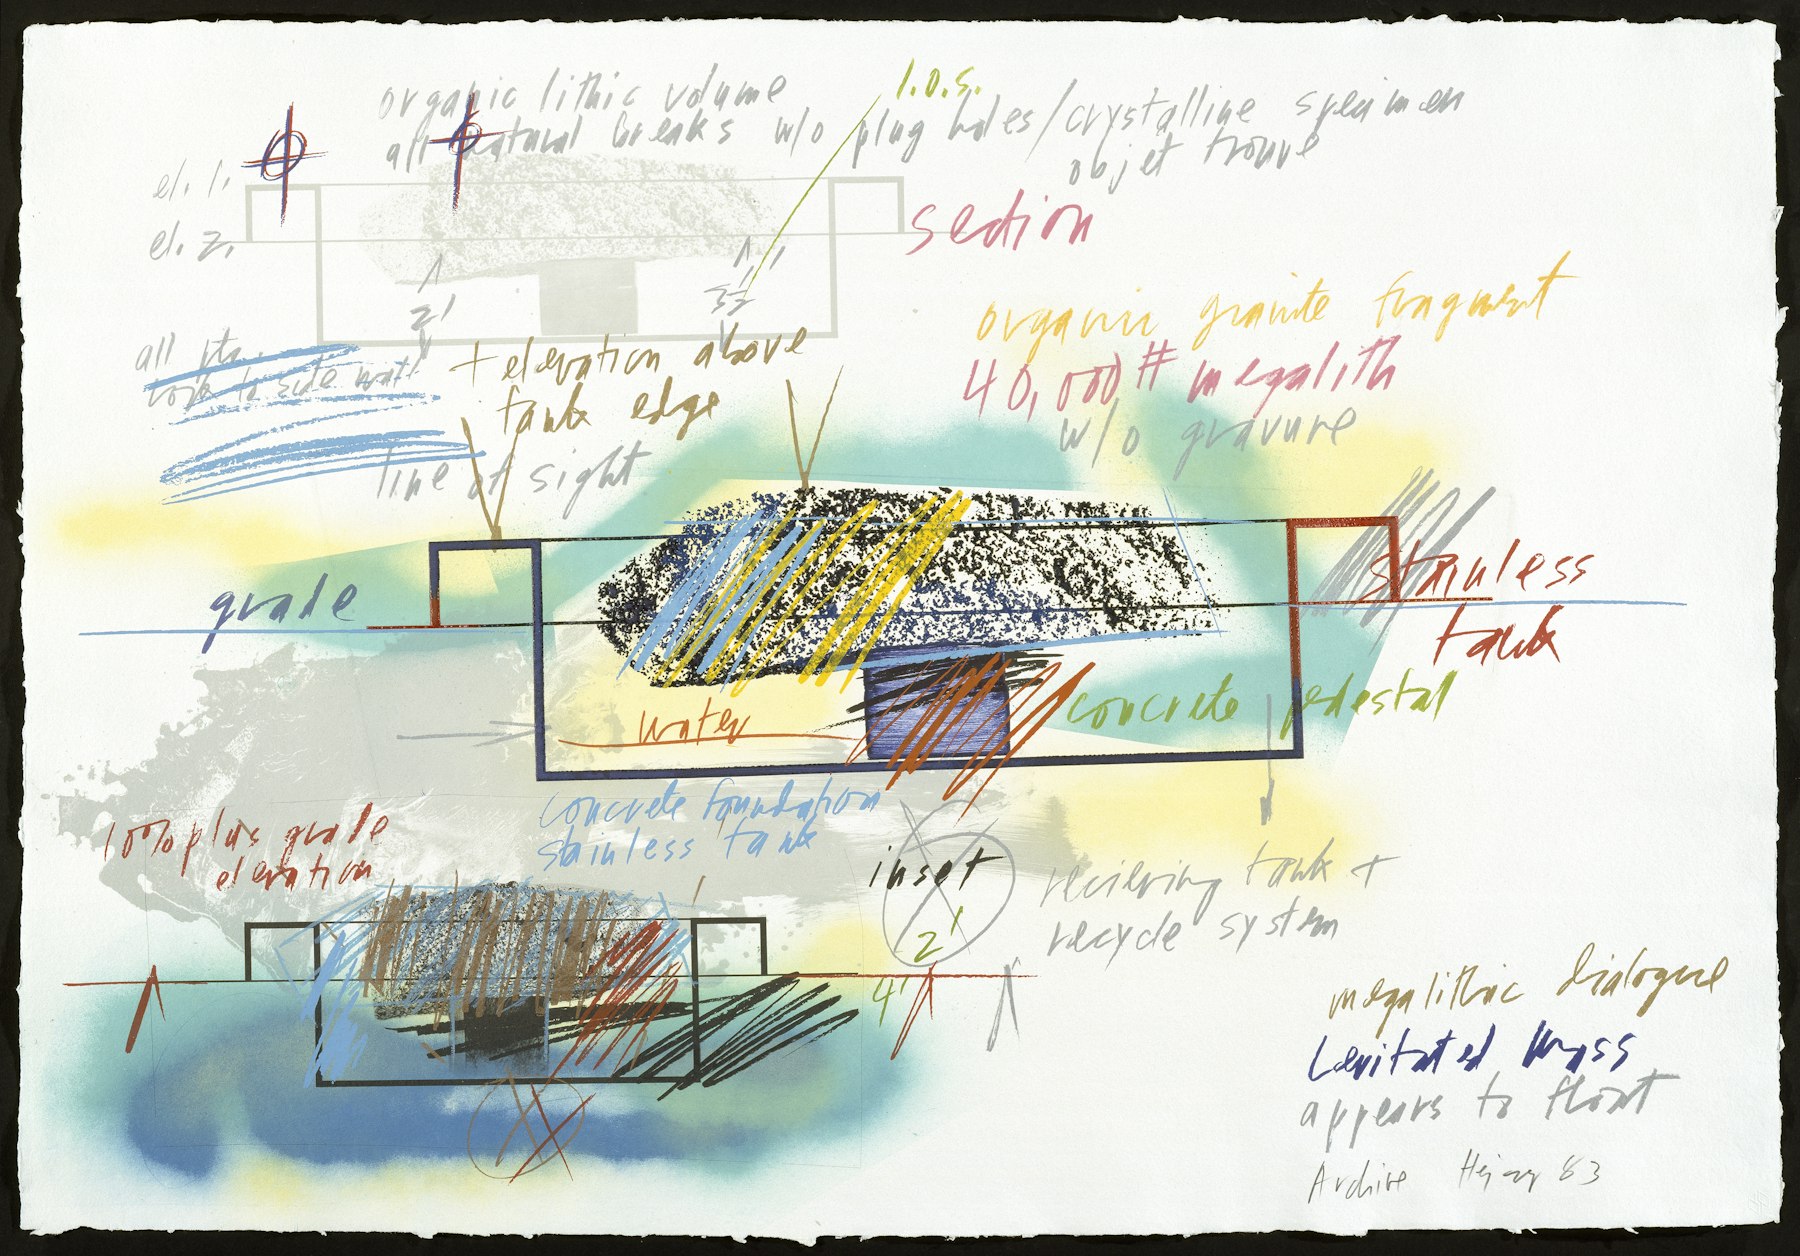 organic lithic volume
l.o.s.
all natural breaks w/o plug holes/crystalline specimen
objet trouve
el. 1.
el. 2.
section
2'
all pts.
to side wall
+ elevation above
tank edge
line of sight
organic granite fragment
40,000# megalith
w/o gravure
grade
stainless
tank
water
concrete pedestal
concrete foundation
stainless tank
100% plus grade
elevation
inset
2'
4'
recieving tank +
recycle system
megalithic dialogue
Levitated Mass
appears to float
Archive Heizer 83